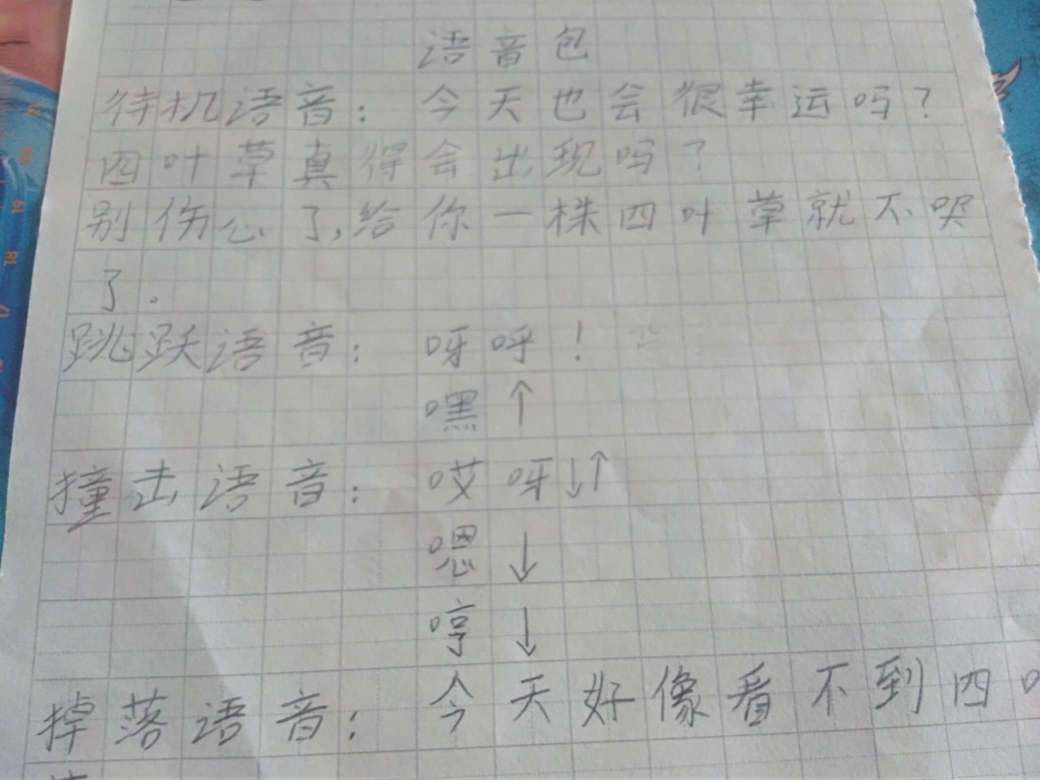 语音包
待机语音：今天也会很幸运吗？
四叶草真得会出现吗？
别伤心了,给你一株四叶草就不哭
了.
跳跃语音：呀呼！
嘿↑
撞击语音：哎呀↓↑
嗯↓
哼↓
掉落语音：今天好像看不到四